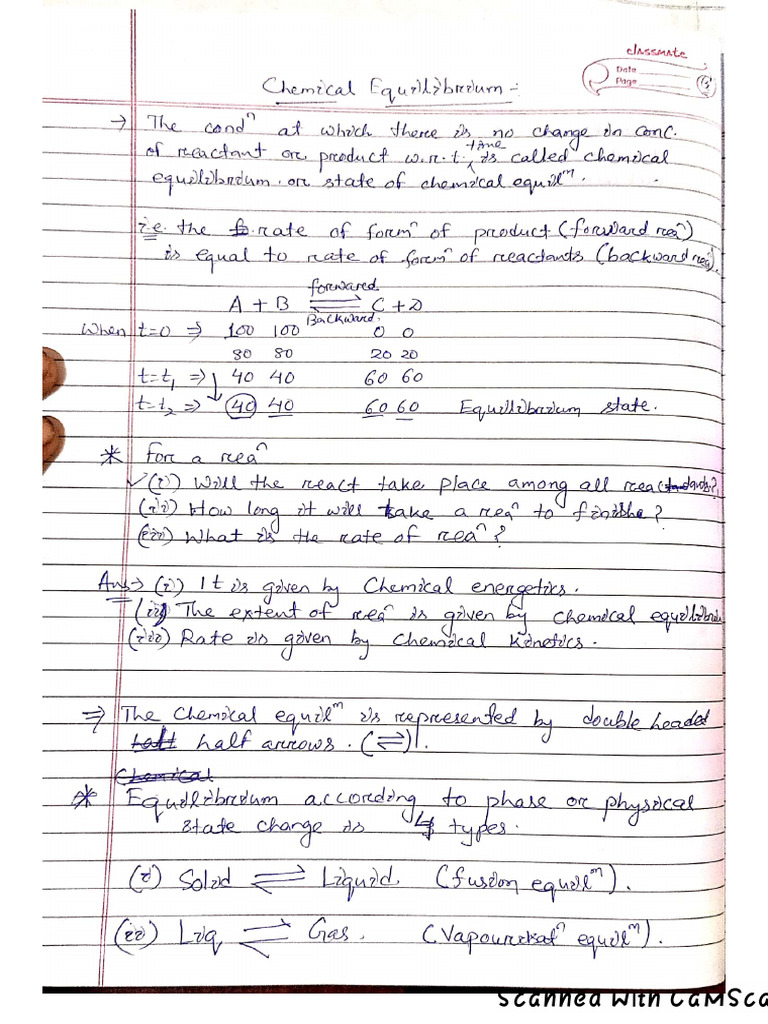 classmate
Date
Page
Chemical Equilibrium :-
→ The condⁿ at which there is no change in conc.
of reactant or product w.r.t. time is called chemical
equilibrium or state of chemical equilᵐ.
i.e. the rate of formⁿ of product (forward reaⁿ)
is equal to rate of formⁿ of reactants (backward reaⁿ).
forward
A + B ⇌ C + D
Backward
When t=0 ⇒ 100 100 0 0
80 80 20 20
t=t₁ ⇒ 40 40 60 60
t=t₂ ⇒ 40 40 60 60 Equilibrium state.
* For a reaⁿ
✓(i) Will the react take place among all reactants?
(ii) How long it will take a reaⁿ to finishe?
(iii) What is the rate of reaⁿ?
Ans → (i) It is given by Chemical energetics.
(ii) The extent of reaⁿ is given by chemical equilibrium
(iii) Rate is given by Chemical Kinetics.
⇒ The Chemical equilᵐ is represented by double headed
half arrows. (⇌).
Chemical
* Equilibrium according to phase or physical
state change is 4 types.
(i) Solid ⇌ Liquid. (fusion equilᵐ).
(ii) Liq ⇌ Gas. (Vapourisatⁿ equilᵐ).
Scanned with CamSca